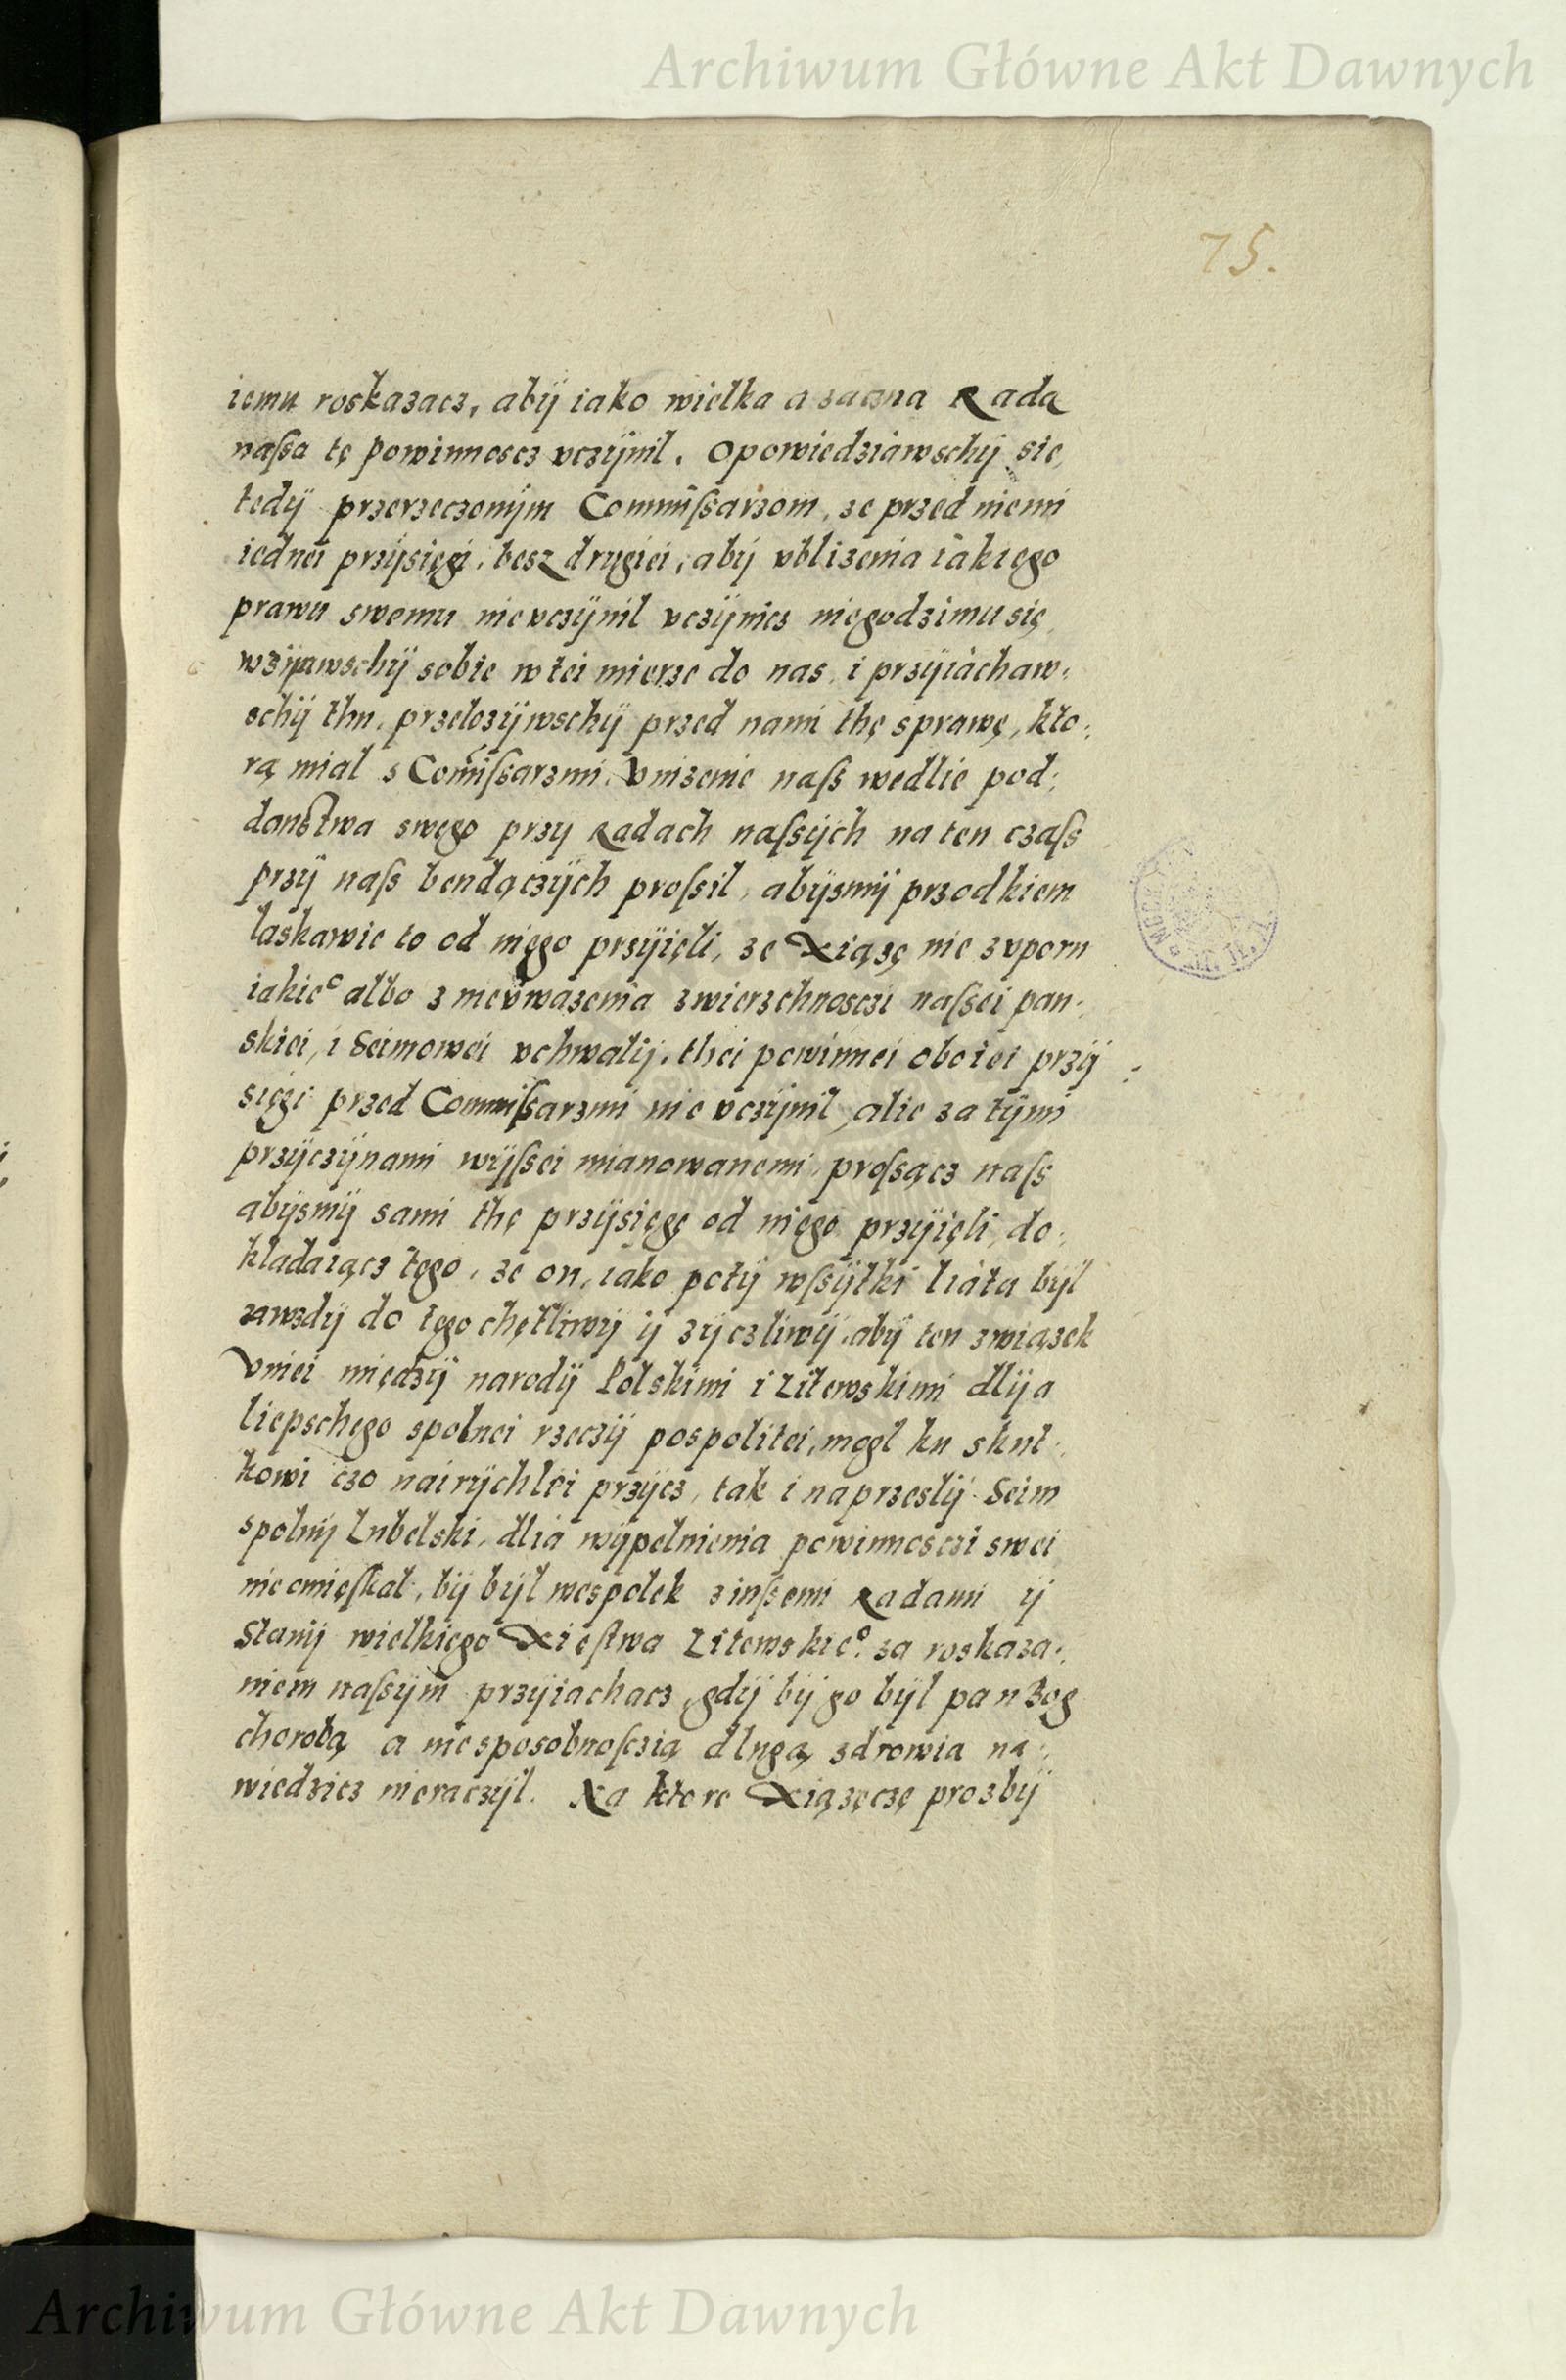 Archiwum Główne Akt Dawnych
75.
iemu roskazacz, abÿ iako wielka a zaczna Rada
naſſa tę powinnoscz vczÿnil. Opowiedziawschÿ sie
tedÿ przerzeczonÿm Commiſſarzom, ze przed niemi
iednei przÿsięgi, besz drugiei, abÿ vblizenia iakiego
prawu swemu nievczÿnil vczÿnicz niegodzimu się
wzÿawschÿ sobie w tei mierze do nas, i przÿiachaw:
schÿ thu, przelozÿwschÿ przed nami thę sprawę, kto:
rą mial s Comiſſarzmi, Vnizenie naſs wedlie pod:
danſtwa swego przy Radach naſsÿch na ten czaſs
przÿ naſs bendączÿch proſsil, abÿsmÿ przodkiem
laskawie to od niego przÿięli, ze Xiązę nie z vporu
iakie° albo z nievwazenia zwierzchnosczi naſsei pan:
skiei, i Seimowei vchwalÿ, thei powinnei oboiei przÿ:
sięgi przed Commiſsarzmi nie vczÿnil, alie za tÿmi
przÿczÿnami wÿſsei mianowanemi, proſsącz naſs
abÿsmÿ sami thę przÿsięgę od niego przÿięli, do:
kladaiącz tego, ze on, iako potÿ wſsÿtki liata bÿl
zawzdÿ do tego chętliwÿ ÿ zÿczliwÿ, abÿ ten związek
Vniei międzÿ narodÿ Polskimi i Litewskimi dlÿa
liepschego spolnei rzeczÿ pospolitei, mogl ku skut:
kowi czo nairÿchlei przÿcz, tak i na przeslÿ Seim
spolnÿ Lubelski, dlia wÿpelnienia powinnosczi swei
nieomięſkal, bÿ bÿl wespolek z inſsemi Radami ÿ
Stanÿ wielkiego Xięſtwa Litewskie°. za roskaza:
niem naſsÿm przÿiachacz, gdÿ bÿ go bÿl pan Bog
chorobą a niesposobnoſczią dlugą zdrowia na:
wiedzicz nieraczÿl. Na ktore Xiązęczę prozbÿ
Archiwum Główne Akt Dawnych